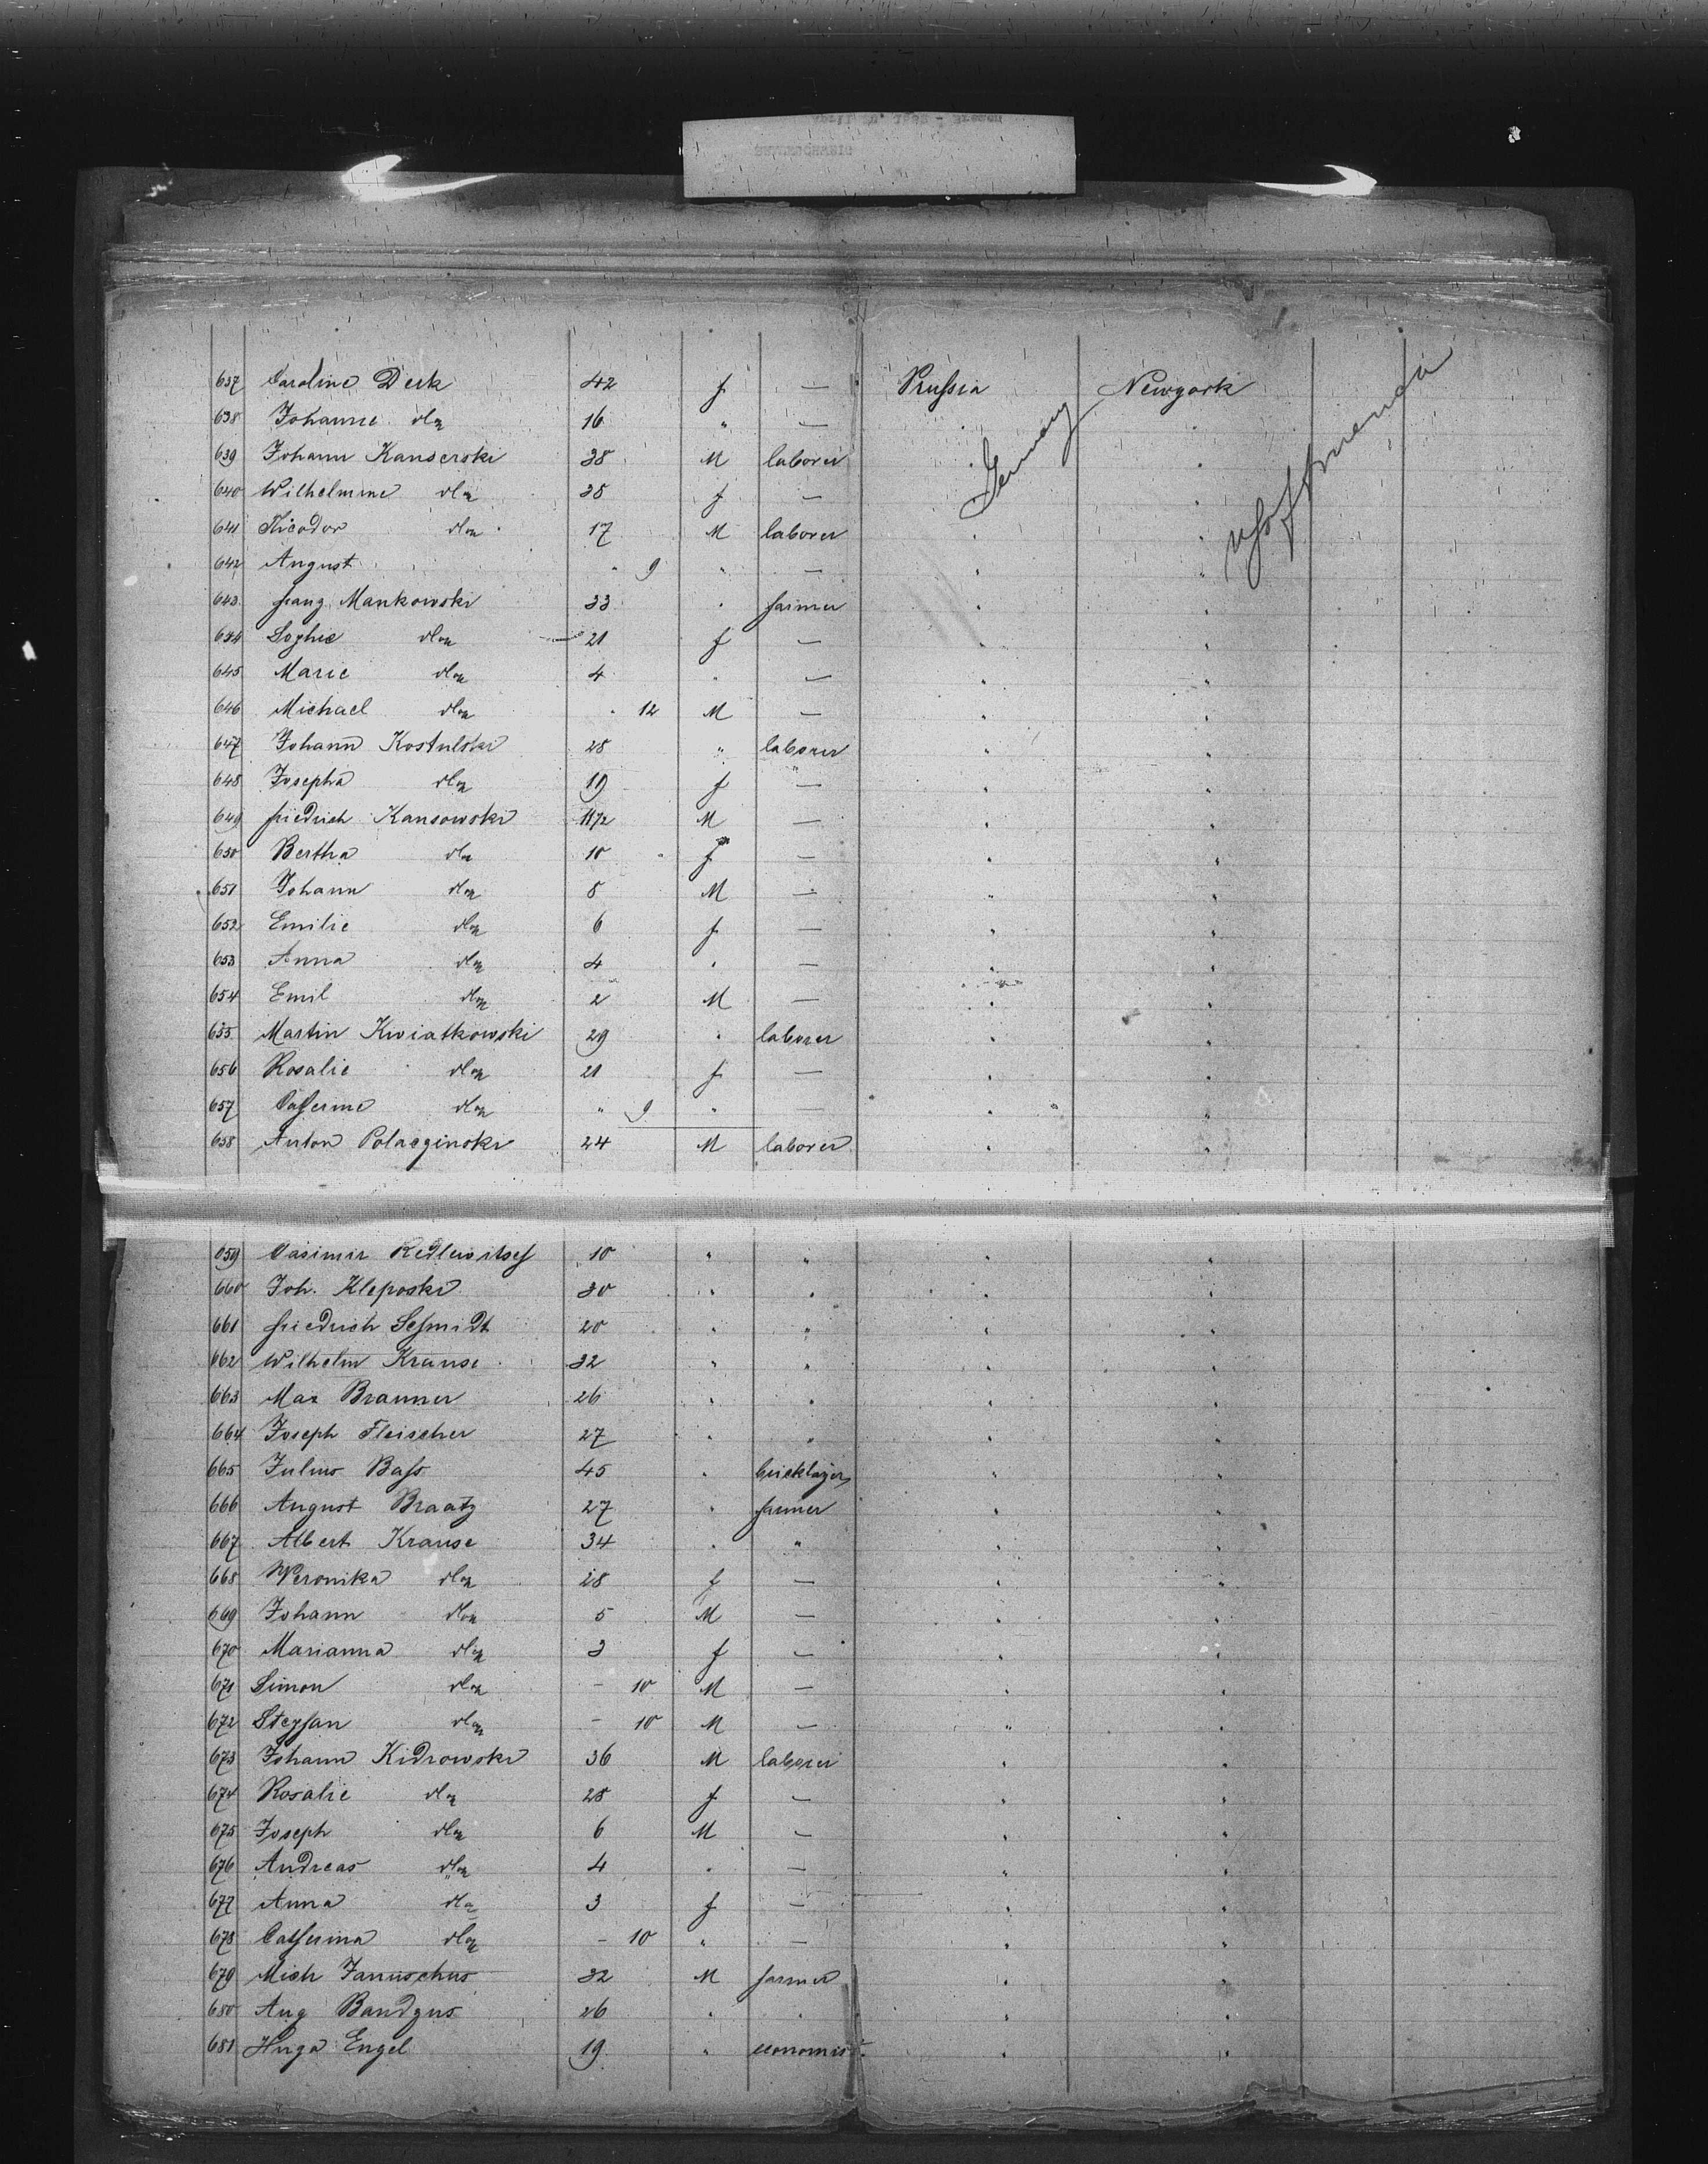 637 Caroline Derk 42 f — Prussia Newyork
638 Johanne do 16 " — " "
639 Johann Kanserski 38 M laborer " "
640 Wilhelmine do 38 f — " "
641 Theodor do 17 M laborer " "
642 August " 9 " — " "
Germany
643 Franz Mankowski 33 " farmer " "
644 Sophie do 21 f — " "
645 Marie do 4 " — " "
646 Michael do " 12 M — " "
647 Johann Kostulski 28 " laborer " "
648 Josepha do 19 f — " "
649 Friedrich Kansowski M — " "
650 Bertha do 10 f — " "
651 Johann do 8 M — " "
652 Emilie do 6 f — " "
653 Anna do 4 " — " "
654 Emil do 2 M — " "
655 Martin Kwiatkowski 29 " laborer " "
656 Rosalie do 21 f — " "
657 do " 9 " — " "
658 Anton Polaczinski 24 M laborer " "
659 Casimir Redlewitsch 10 " " " "
660 Joh. Kleposki 30 " " " "
661 Friedrich Schmidt 20 " " " "
662 Wilhelm Krause 32 " " " "
663 Max Branner 26 " " " "
664 Joseph Fleischer 27 " " " "
665 Julius Bass 45 " bricklayer " "
666 August Braatz 27 " farmer " "
667 Albert Krause 34 " " " "
668 Weronika do 28 f — " "
669 Johann do 5 M — " "
670 Marianna do 3 f — " "
671 Simon do - 10 M — " "
672 Stephan do - 10 M — " "
673 Johann Kidrowski 36 M laborer " "
674 Rosalie do 28 f — " "
675 Joseph do 6 M — " "
676 Andreas do 4 " — " "
677 Anna do 3 f — " "
678 Catherina do - 10 " — " "
679 Mich Januschus 32 M farmer " "
680 Aug Bandzus 26 " " " "
681 Hugo Engel 19 " economist " "